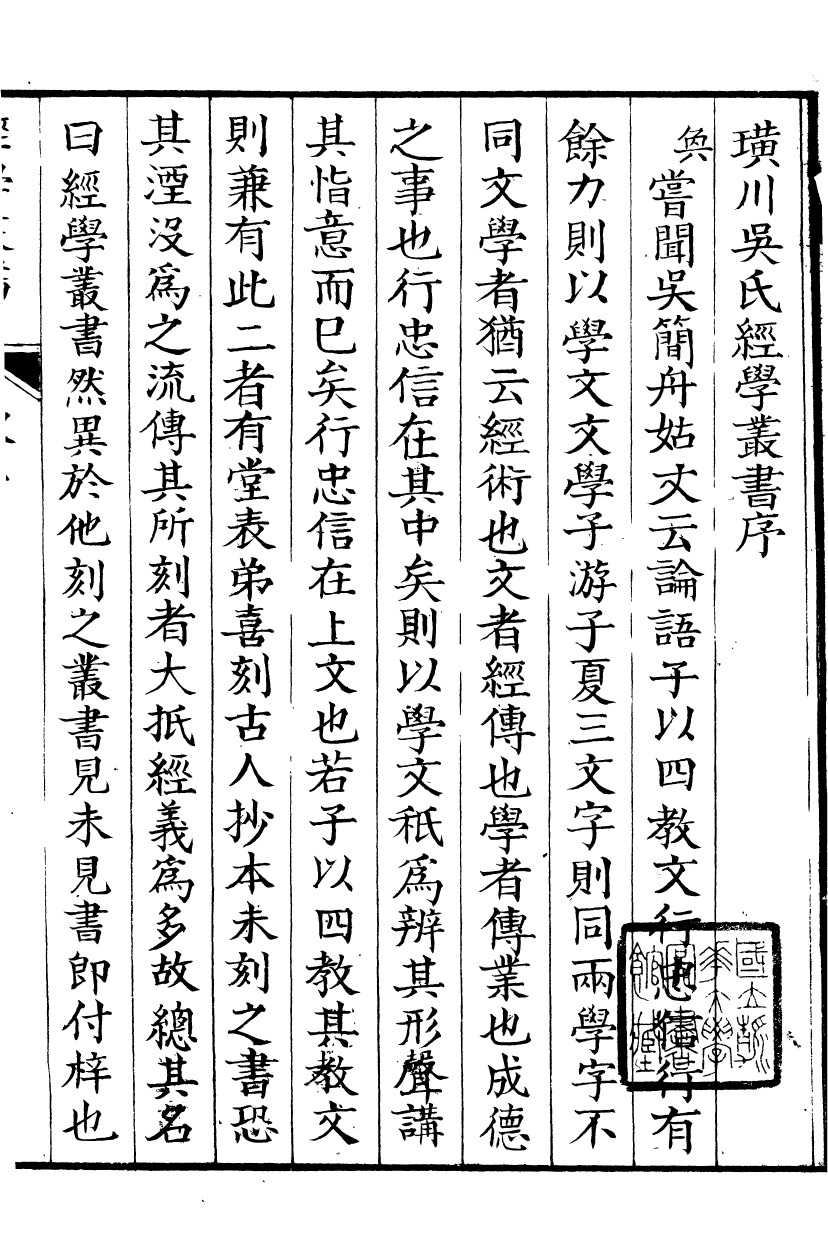 璜川吳氏經學叢書序
嘗聞吳簡舟姑丈云論語子以四教文行忠信行有
餘力則以學文文學子游子夏三文字則同兩學字不
同文學者猶云經術也文者經傳也學者傳業也成德
之事也行忠信在其中矣則以學文秖爲辨其形聲講
其恉意而已矣行忠信在上文也若子以四教其教文
則兼有此二者有堂表弟喜刻古人抄本未刻之書恐
其湮沒爲之流傳其所刻者大抵經義爲多故總其名
曰經學叢書然異於他刻之叢書見未見書即付梓也
國立
學